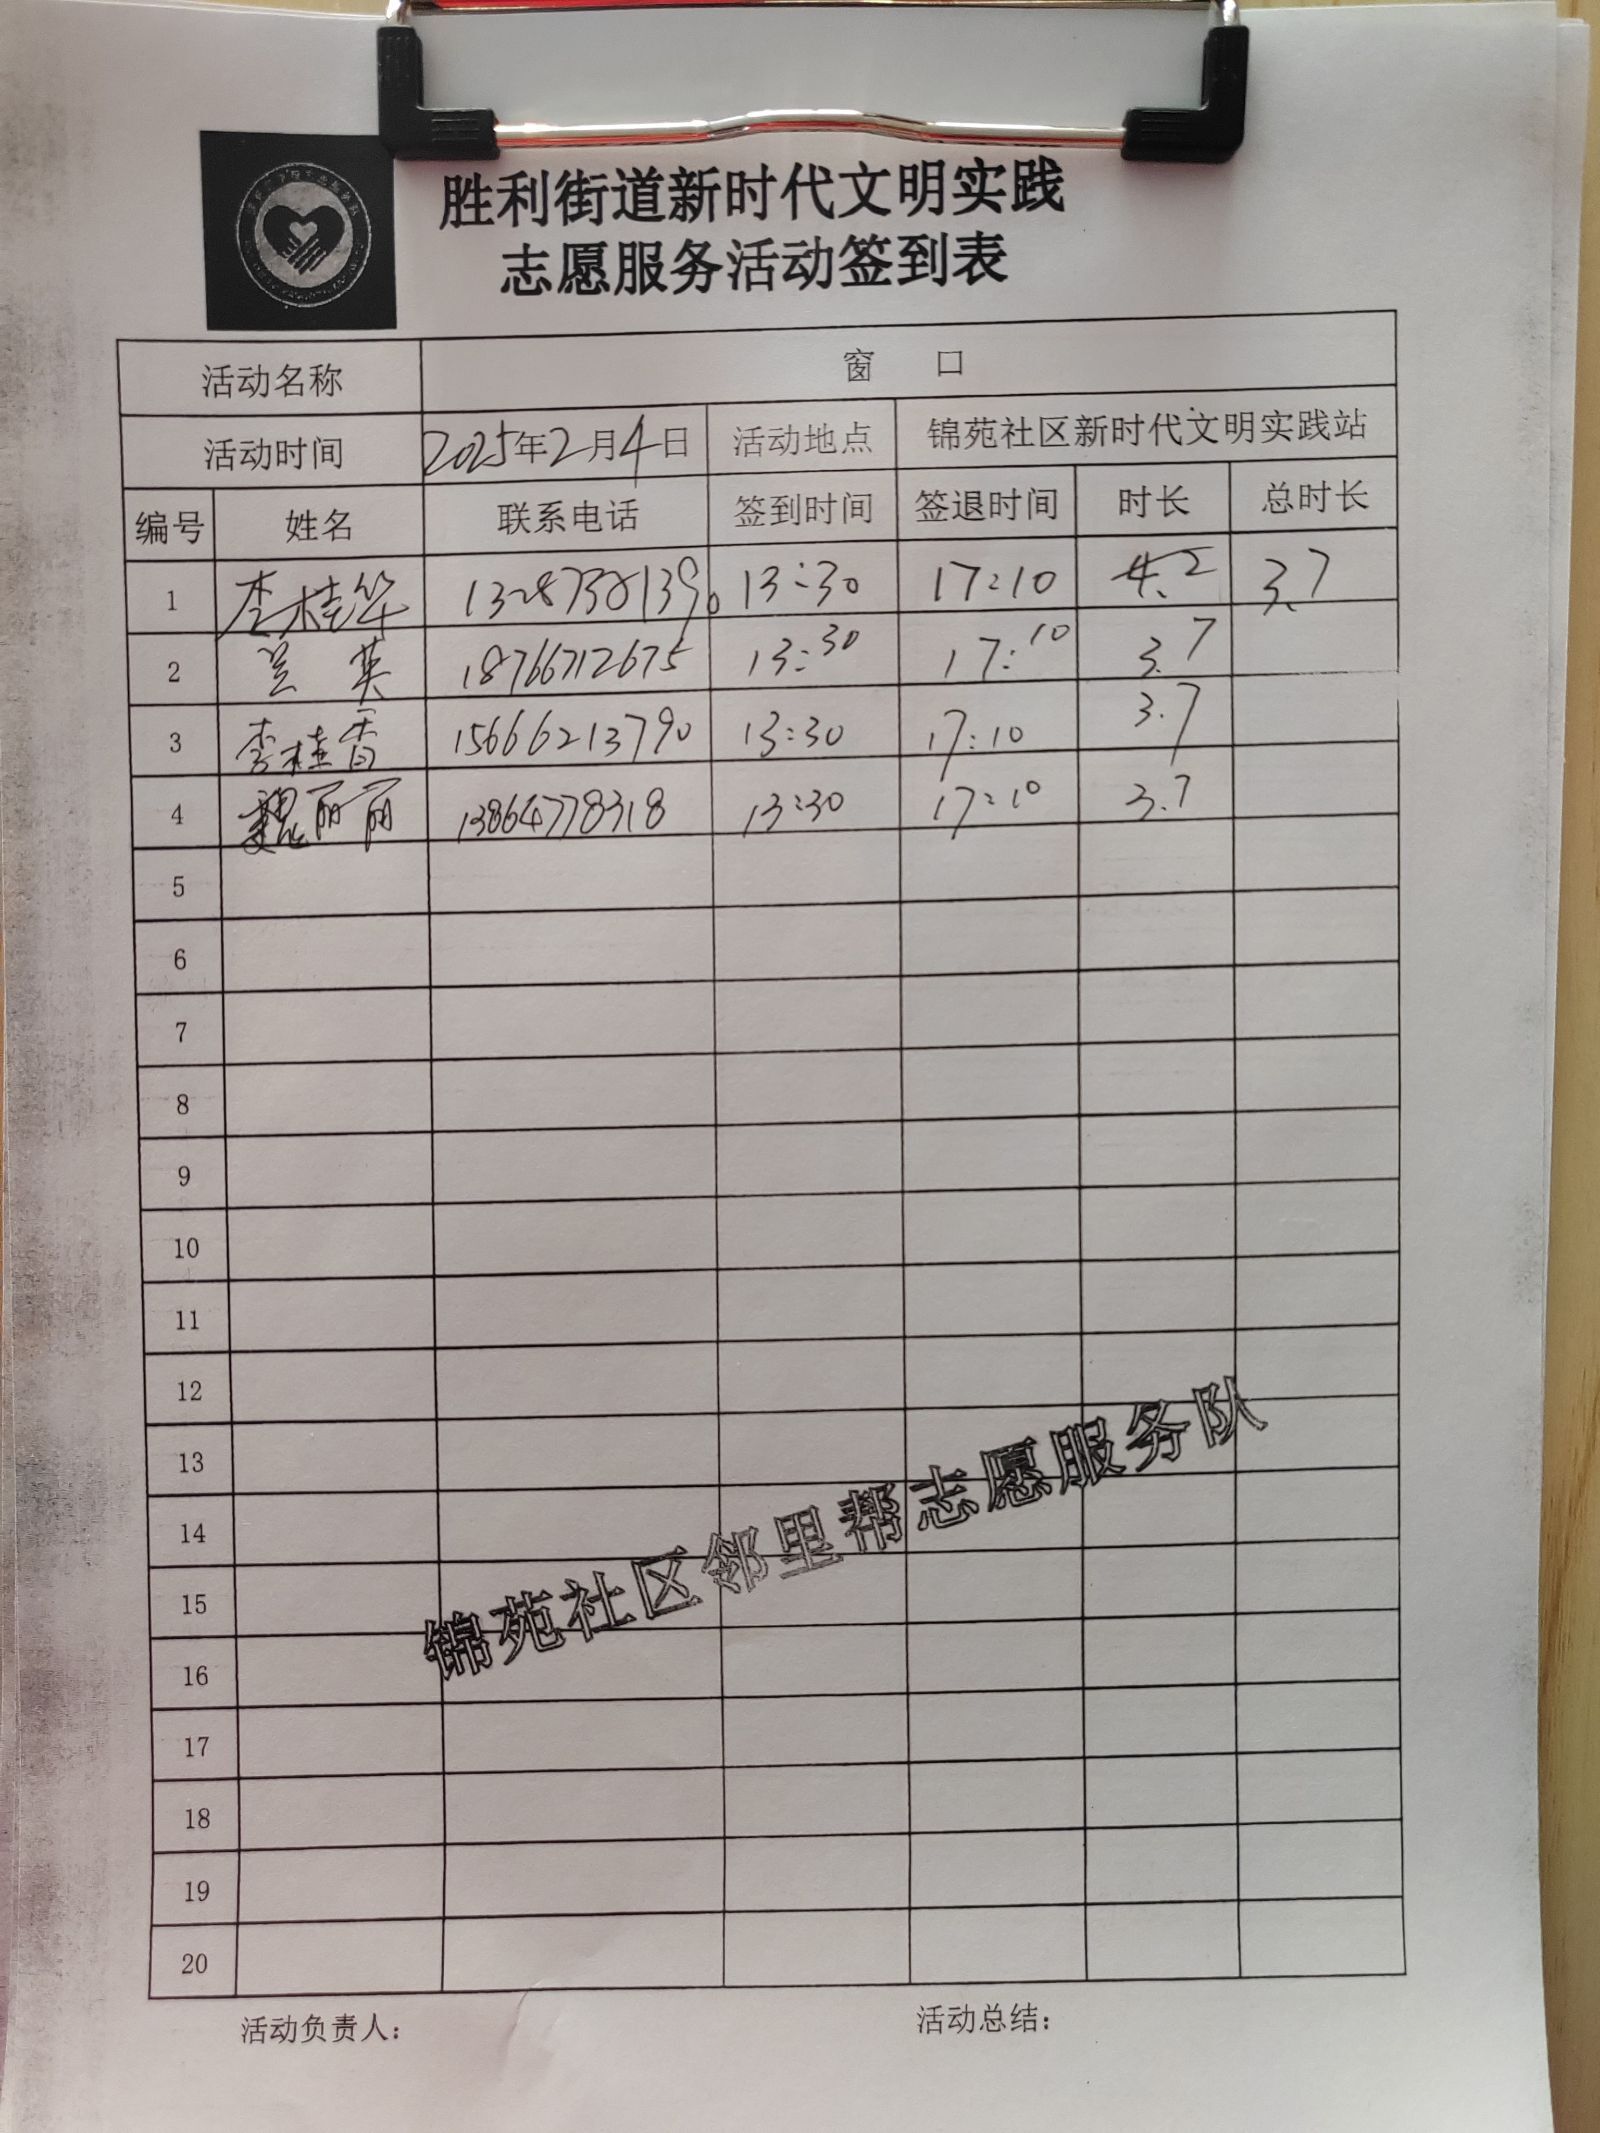 胜利街道新时代文明实践
志愿服务活动签到表
活动名称 窗 口
活动时间 2025年2月4日 活动地点 锦苑社区新时代文明实践站
编号 姓名 联系电话 签到时间 签退时间 时长 总时长
1 李桂华 13:30 17:10 4.2 3.7
2 英 18766712675 13:30 17:10 3.7
3 李桂香 15666213790 13:30 17:10 3.7
4 魏丽丽 13864778318 13:30 17:10 3.7
5
6
7
8
9
10
11
12
13
14
15
16
17
18
19
20
锦苑社区邻里帮志愿服务队
活动负责人： 活动总结：